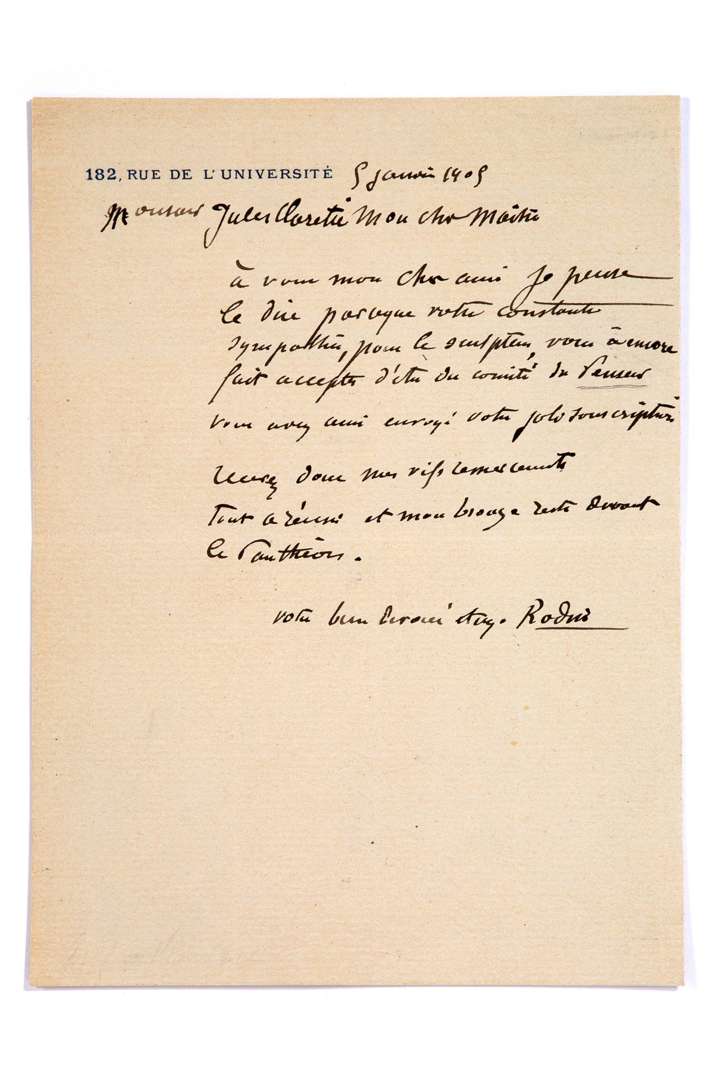 182, RUE DE L'UNIVERSITÉ 5 janvier 1905
Monsieur Jules Claretie Mon cher Maître
à vous mon cher ami je pense
le dire parceque votre constante
sympathie, pour le sculpteur, vous à encore
fait accepter d'être du comité du Penseur
vous avez aussi envoyé votre jolie souscription
recevez donc mes vifs remerciements
Tout a réussi et mon bronze reste devant
le Panthéon.
votre bien dévoué Rodin